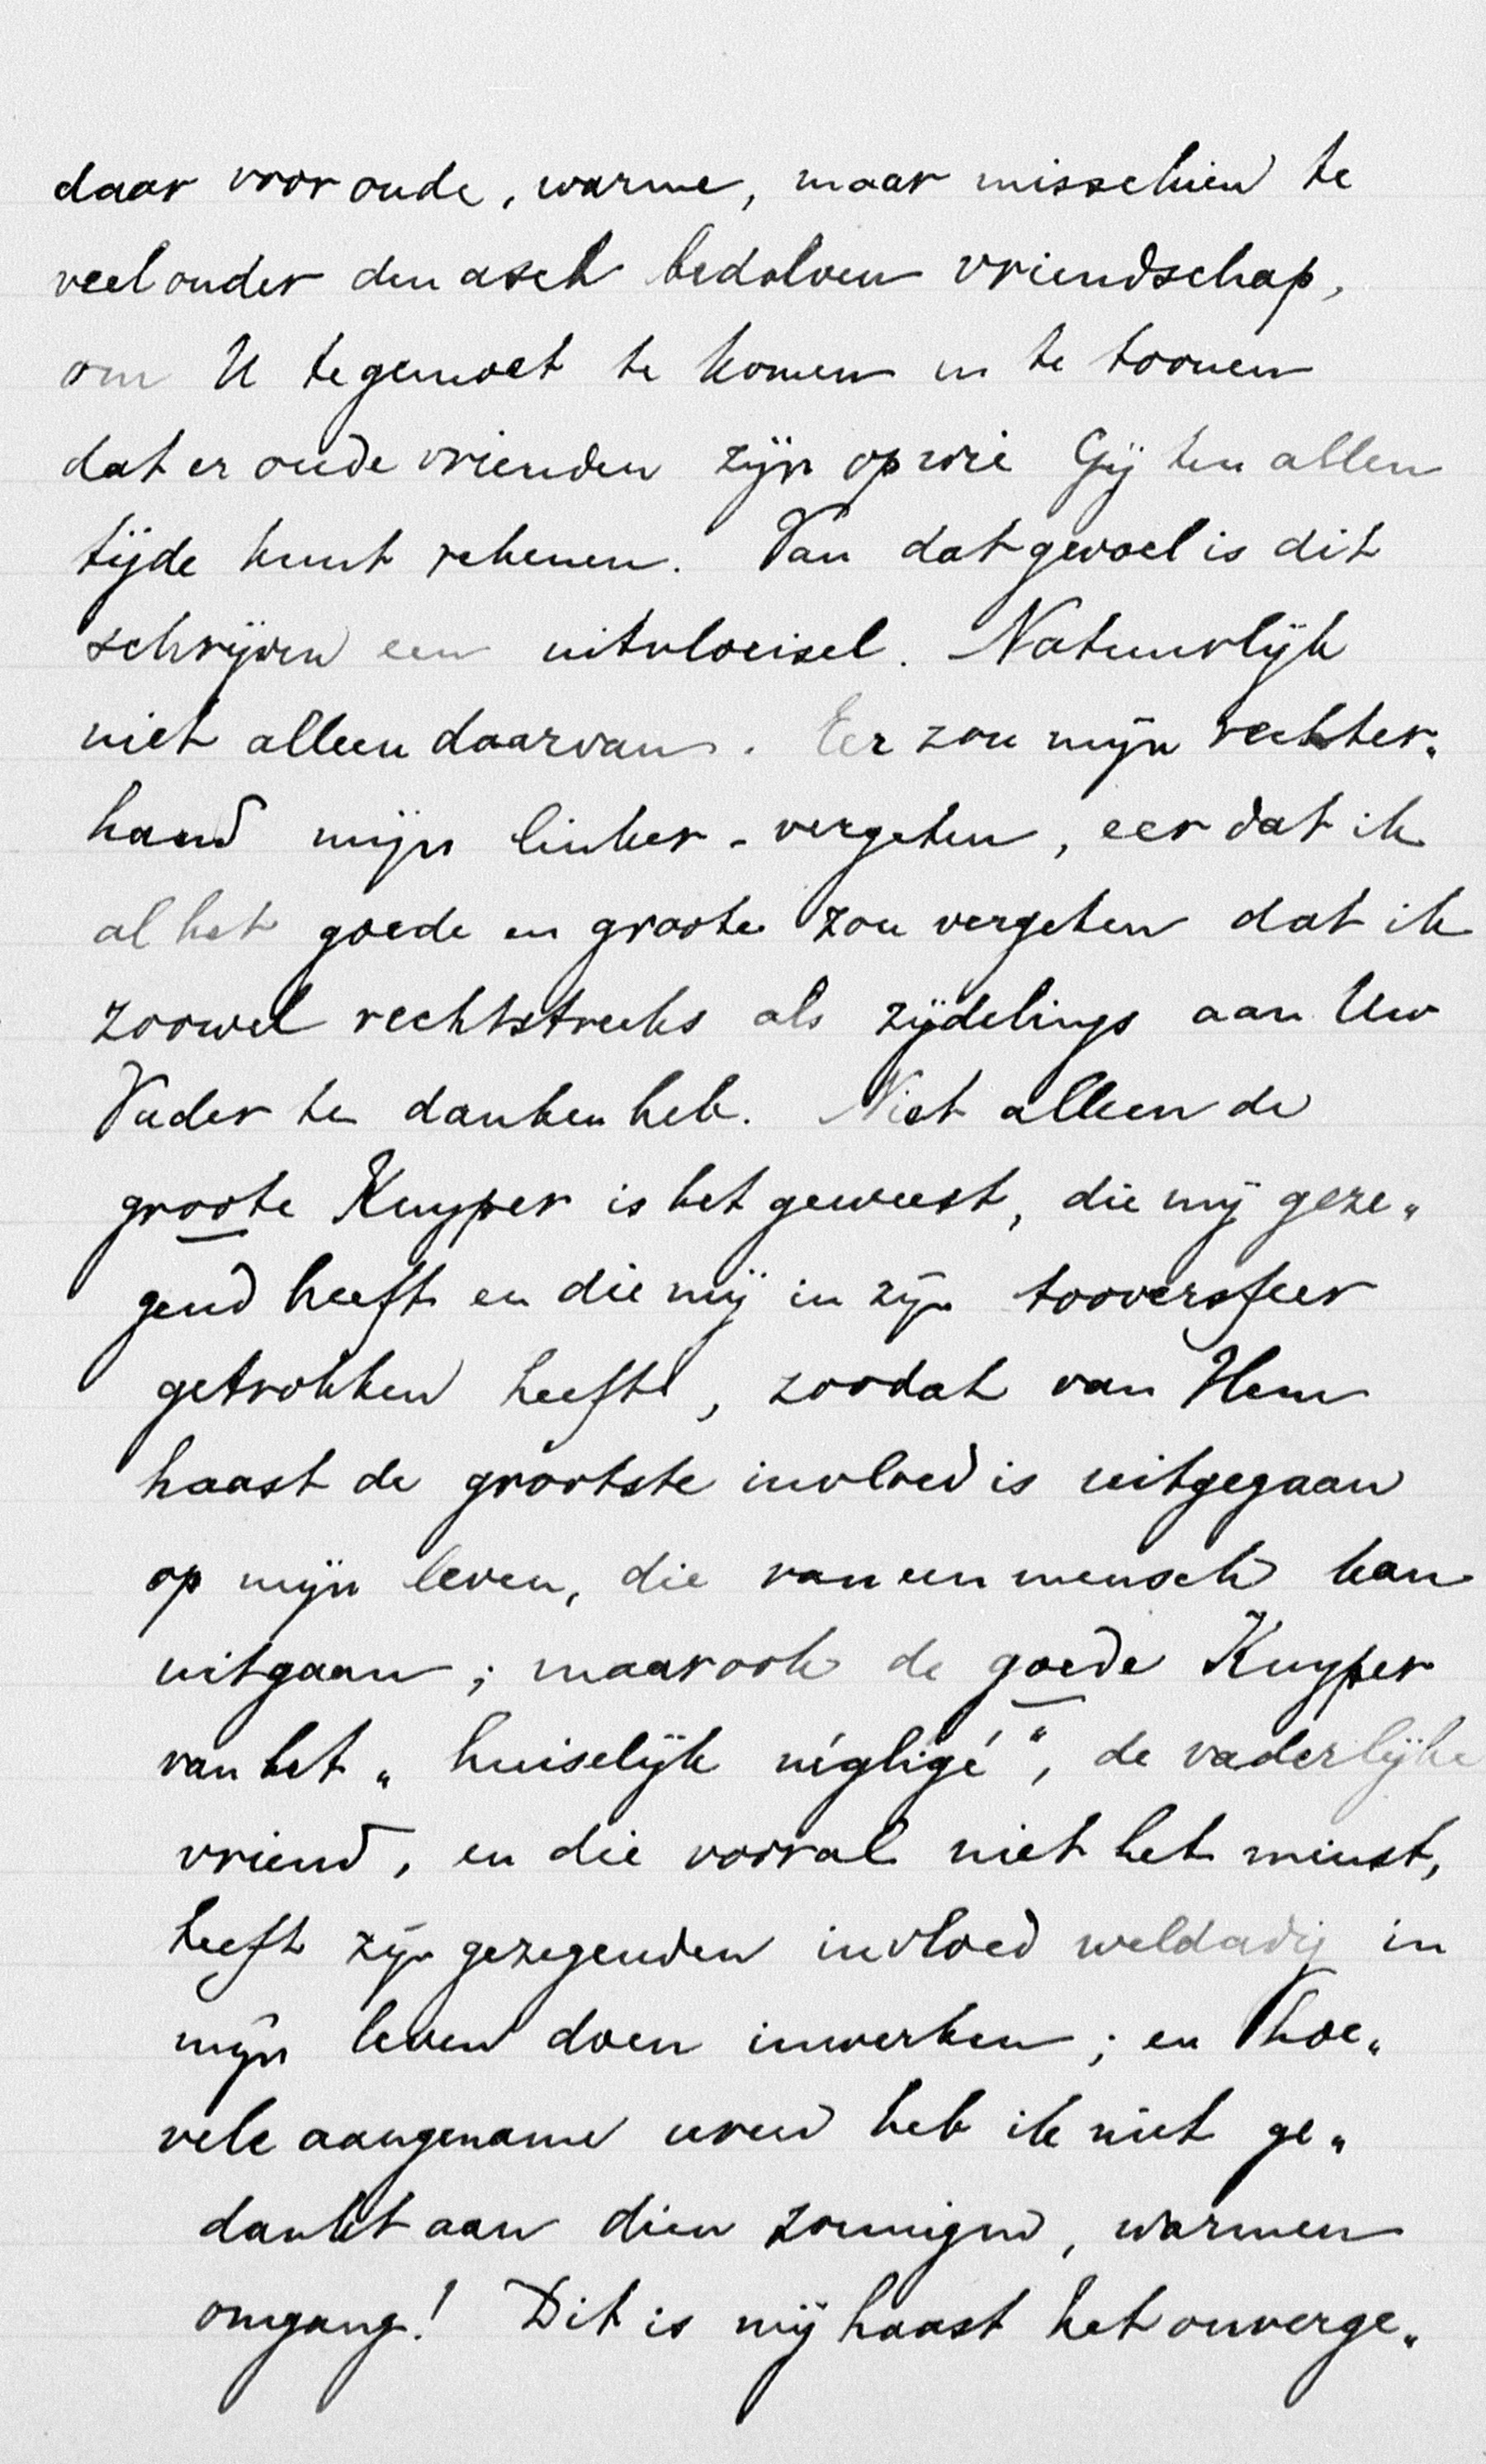 daar voor oude, warme, maar misschien te
veel onder den asch bedolven vriendschap,
om U tegemoet te komen en te toonen
dat er oude vrienden zijn op wie Gij ten allen
tijde kunt rekenen. Van dat gevoel is dit
schrijven een uitvloeisel. Natuurlijk
niet alleen daarvan. Eer zou mijn rechter„
hand mijn linker - vergeten, eer dat ik
al het goede en groote zou vergeten dat ik
zoowel rechtstreeks als zijdelings aan Uw
Vader te danken heb. Niet alleen de
groote Kuyper is het geweest, die mij geze„
gend heeft en die mij in zijn tooversfeer
getrokken heeft, zoodat van Hem
haast de grootste invloed is uitgegaan
op mijn leven, die van een mensch kan
uitgaan; maar ook de goede Kuyper
van het „huiselijk négligé“, de vaderlijke
vriend, en die vooral niet het minst,
heeft zijn gezegenden invloed weldadig in
mijn leven doen inwerken; en hoe„
vele aangename uren heb ik niet ge„
dankt aan dien zonnigen, warmen
omgang! Dit is mij haast het onverge„